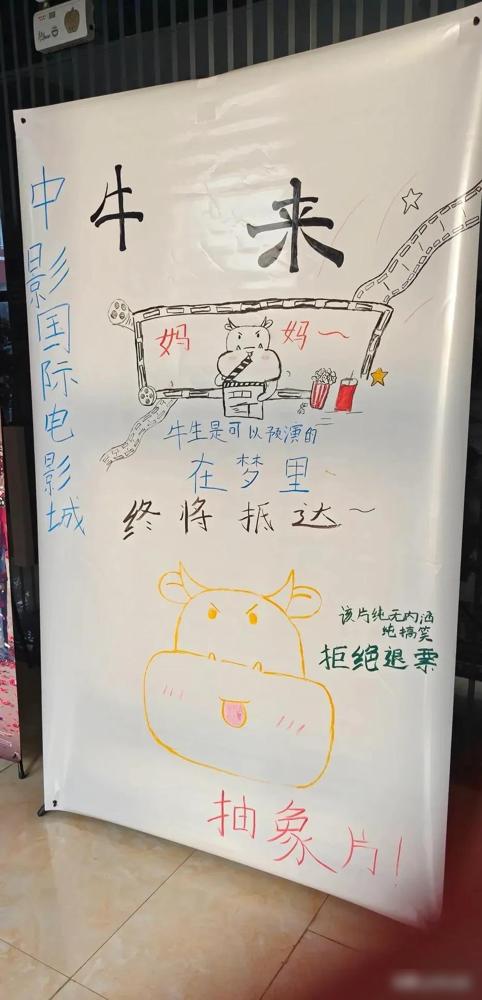 中影国际电影城
牛来
妈 妈～
牛生是可以预演的
在梦里
终将抵达～
该片纯无内涵
纯搞笑
拒绝退票
抽象片！